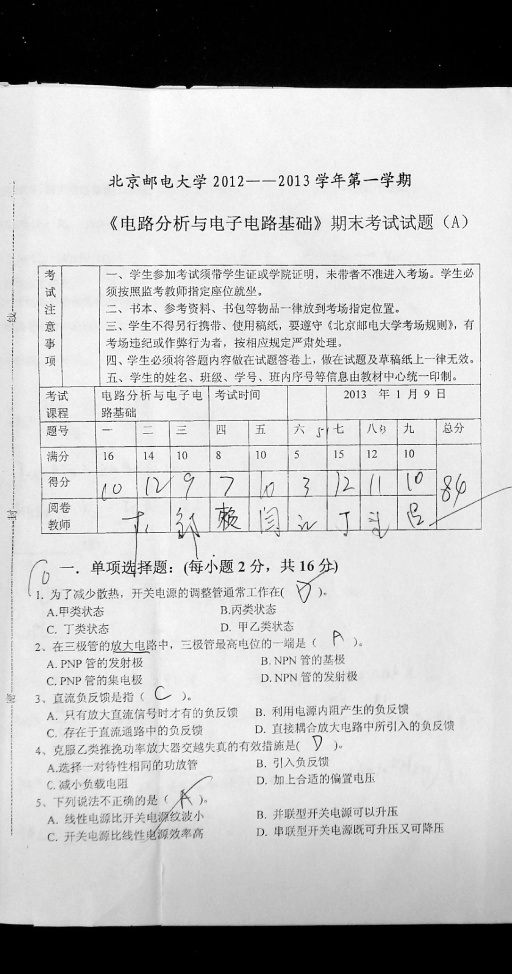 北京邮电大学2012——2013学年第一学期
《电路分析与电子电路基础》期末考试试题（A）
考试注意事项
一、学生参加考试须带学生证或学院证明，未带者不准进入考场。学生必
须按照监考教师指定座位就坐。
二、书本、参考资料、书包等物品一律放到考场指定位置。
三、学生不得另行携带、使用稿纸，要遵守《北京邮电大学考场规则》，有
考场违纪或作弊行为者，按相应规定严肃处理。
四、学生必须将答题内容做在试题答卷上，做在试题及草稿纸上一律无效。
五、学生的姓名、班级、学号、班内序号等信息由教材中心统一印制。
考试课程 电路分析与电子电路基础 考试时间 2013 年 1 月 9 日
题号 一 二 三 四 五 六 5 七 八 九 总分
满分 16 14 10 8 10 5 15 12 10
得分 10 12 9 7 10 3 12 11 10 84
阅卷教师
10
一．单项选择题：(每小题 2 分，共 16 分)
1. 为了减少散热，开关电源的调整管通常工作在( D )。
A.甲类状态 B.丙类状态
C. 丁类状态 D. 甲乙类状态
2、在三极管的放大电路中，三极管最高电位的一端是（ A ）。
A. PNP 管的发射极 B. NPN 管的基极
C. PNP 管的集电极 D. NPN 管的发射极
3、直流负反馈是指（ C ）。
A. 只有放大直流信号时才有的负反馈 B. 利用电源内阻产生的负反馈
C. 存在于直流通路中的负反馈 D. 直接耦合放大电路中所引入的负反馈
4、克服乙类推挽功率放大器交越失真的有效措施是( D )。
A.选择一对特性相同的功放管 B. 引入负反馈
C. 减小负载电阻 D. 加上合适的偏置电压
5、下列说法不正确的是（ A ）。
A. 线性电源比开关电源纹波小 B. 并联型开关电源可以升压
C. 开关电源比线性电源效率高 D. 串联型开关电源既可升压又可降压